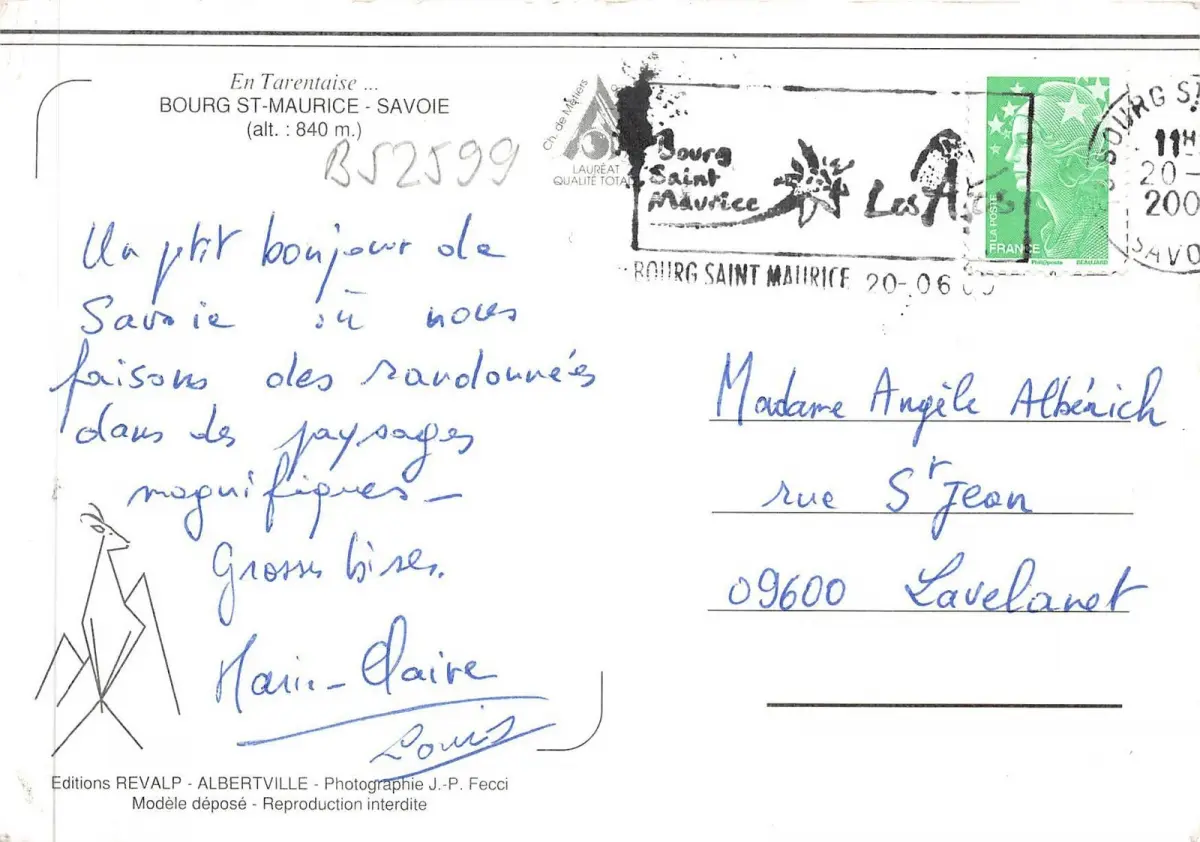 En Tarentaise ...
BOURG ST-MAURICE - SAVOIE
(alt. : 840 m.)
B52599
Ch. de Métiers
LAURÉAT
QUALITÉ TOTA
Bourg
Saint
Maurice
Les Arcs
BOURG SAINT MAURICE 20-06
LA POSTE
FRANCE
Phil@poste
BEAUJARD
BOURG ST
11H
20-
200
SAVO
Un ptit bonjour de
Savoie où nous
faisons des randonnées
dans des paysages
magnifiques -
Grosses bises.
Marie-Claire
Louis
Madame Angèle Albérich
rue St Jean
09600 Lavelanet
Editions REVALP - ALBERTVILLE - Photographie J.-P. Fecci
Modèle déposé - Reproduction interdite